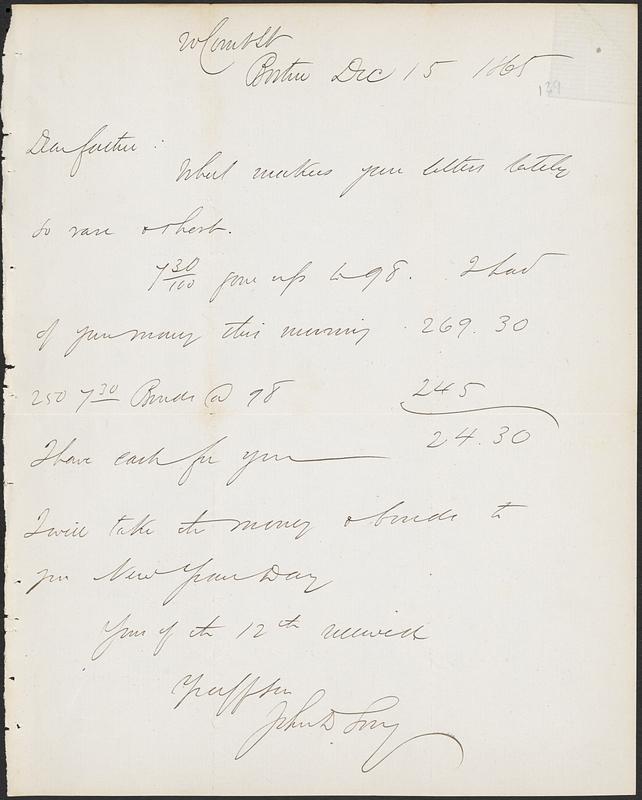 20 Court St
Boston Dec 15 1865
139
Dear father.
What makes your letters lately
so rare & short.
7 30/100 gone up to 98. I had
of your money this morning 269.30
250 7 30 Bonds @ 98 245
24.30
I have cash for you
I will take the money & bonds to
you New Year Day
Yours of the 12th received
Yr aff son
John D. Long